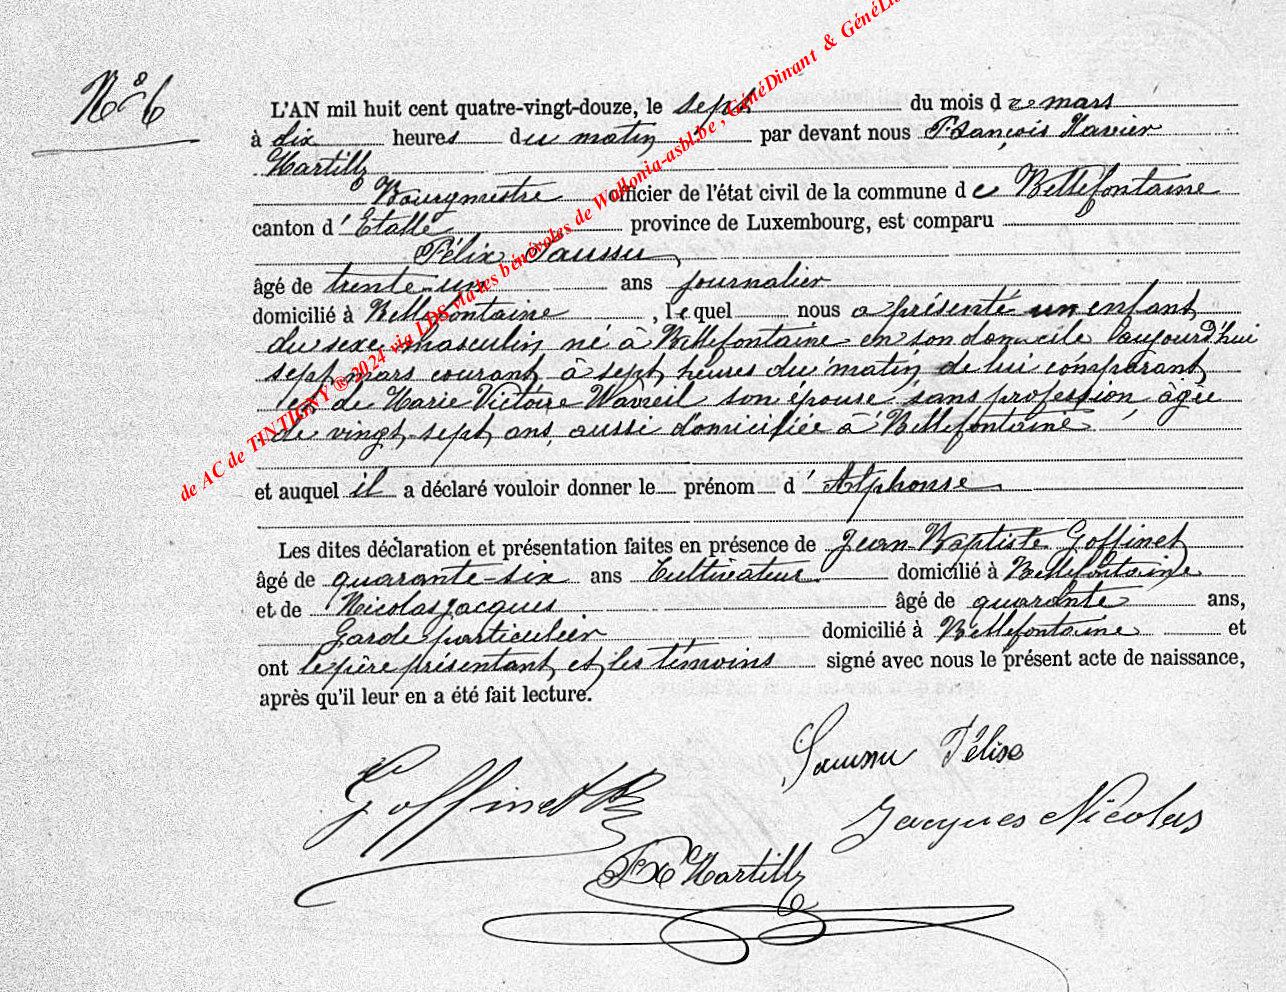 N° 6
L'AN mil huit cent quatre-vingt-douze, le sept du mois de mars
à dix heures du matin par devant nous François Xavier
Martilly
Bourgmestre officier de l'état civil de la commune de Bellefontaine
canton d'Etalle province de Luxembourg, est comparu
Félix Saussu
âgé de trente-un ans journalier
domicilié à Bellefontaine, lequel nous a présenté un enfant
du sexe masculin né à Bellefontaine en son domicile aujourd'hui
sept mars courant à sept heures du matin de lui comparant
et de Marie Victoire Wavreil son épouse sans profession âgée
de vingt-sept ans aussi domiciliée à Bellefontaine
et auquel il a déclaré vouloir donner le prénom d'Alphonse
Les dites déclaration et présentation faites en présence de Jean Baptiste Goffinet
âgé de quarante-six ans Cultivateur domicilié à Bellefontaine
et de Nicolas Jacques âgé de quarante ans,
Garde particulier domicilié à Bellefontaine et
ont le père présentant et les témoins signé avec nous le présent acte de naissance,
après qu'il leur en a été fait lecture.
Saussu Félix
Goffinet
Jacques Nicolas
Martilly
de AC de TINTIGNY ® 2024 via LDS via les bénévoles de Wallonia-asbl.be, GénéDinant &